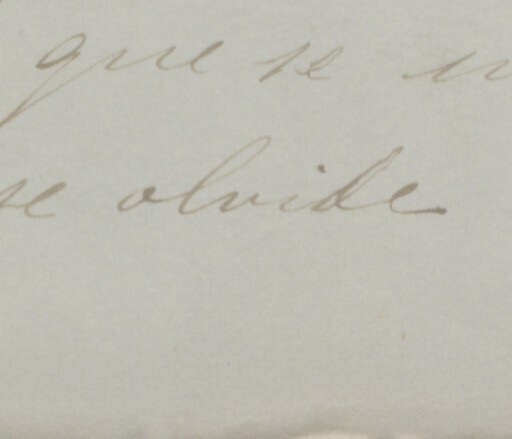 que se
se olvide